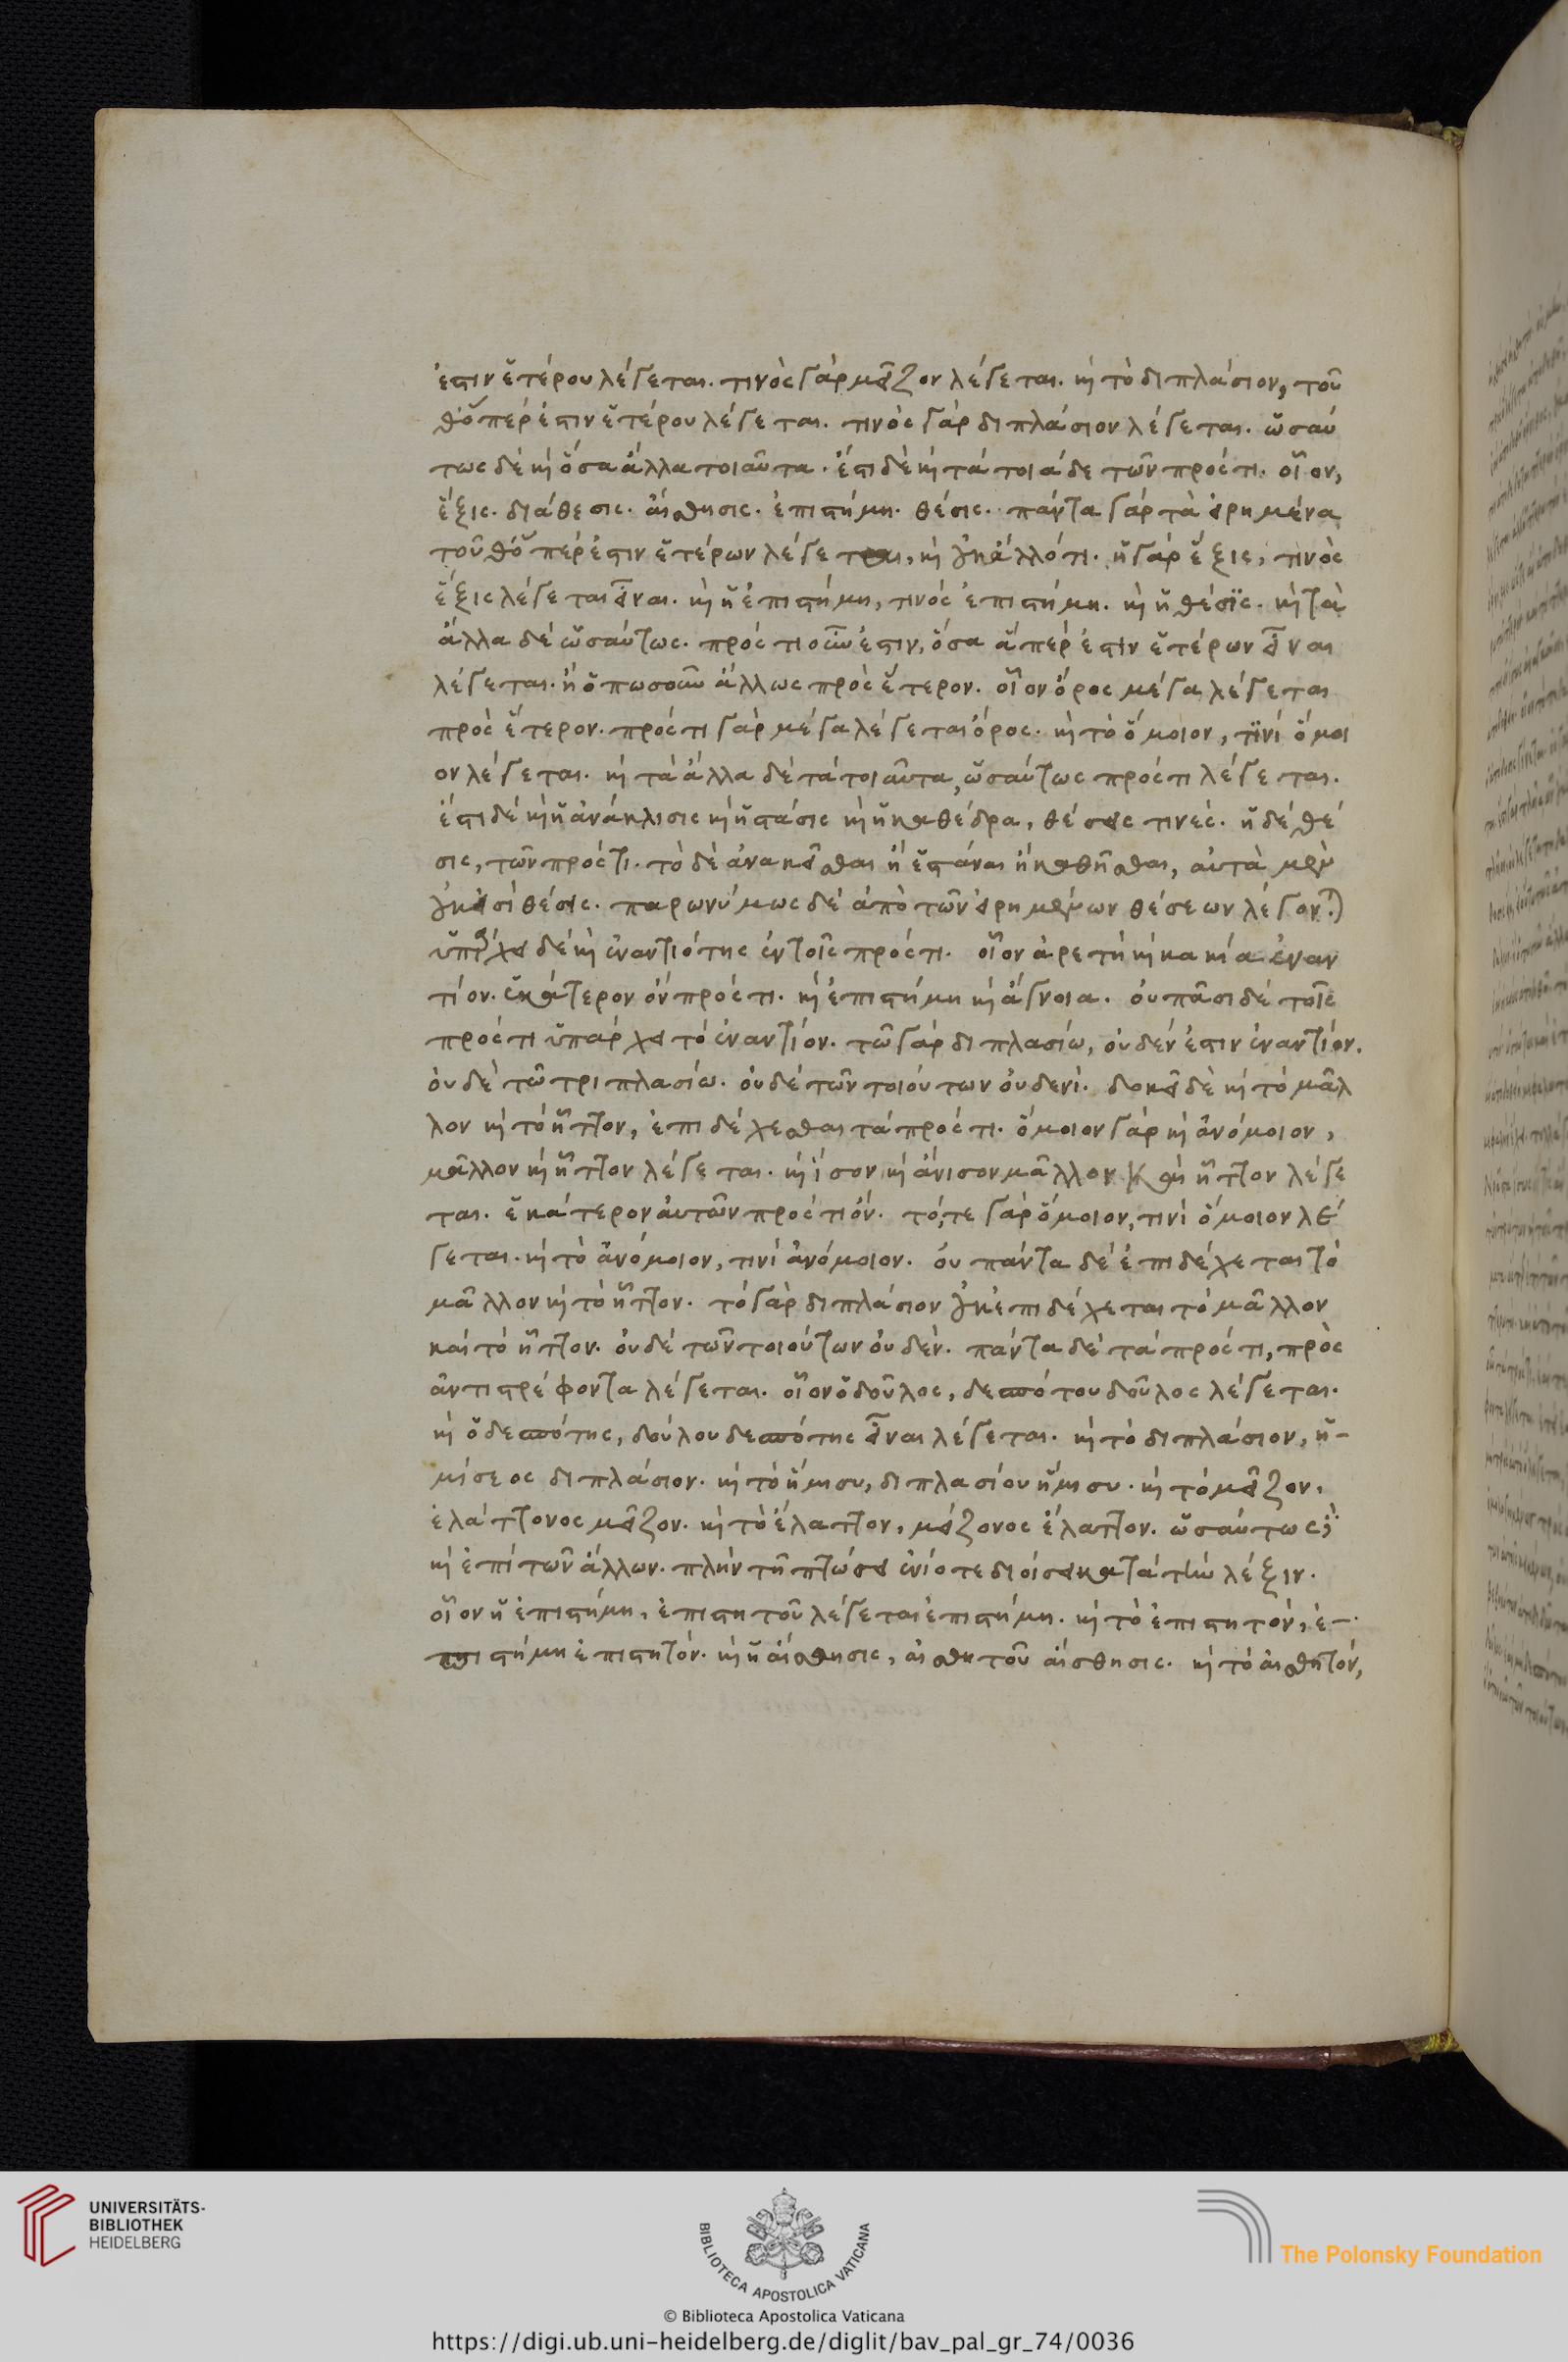 ἐστιν ἑτέρου λέγεται. τινὸς γὰρ μεῖζον λέγεται. καὶ τὸ διπλάσιον, τοῦ
θ' ὅπερ ἐστὶν ἑτέρου λέγεται. τινὸς γὰρ διπλάσιον λέγεται. ὡσαύ
τως δὲ καὶ ὅσα ἄλλα τοιαῦτα. ἔστι δὲ καὶ τὰ τοιάδε τῶν πρός τι. οἷον,
ἕξις. διάθεσις. αἴσθησις. ἐπιστήμη. θέσις. πάντα γὰρ τὰ εἰρημένα
τοῦθ' ὅπερ ἐστὶν ἑτέρων λέγεται, καὶ οὐκ ἄλλό τι. ἡ γὰρ ἕξις, τινὸς
ἕξις λέγεται εἶναι. καὶ ἡ ἐπιστήμη, τινός ἐπιστήμη. καὶ ἡ θέσϊς. καὶ τὰ
ἄλλα δὲ ὡσαύτως. πρός τι οὖν ἐστιν, ὅσα ἅπερ ἐστὶν ἑτέρων εἶναι
λέγεται. ἢ ὁπωσοῦν ἄλλως πρὸς ἕτερον. οἷον ὄρος μέγα λέγεται
πρὸς ἕτερον. πρός τι γὰρ μέγα λέγεται ὄρος. καὶ τὸ ὅμοιον, τϊνί ὅμοι
ον λέγεται. καὶ τὰ ἄλλα δὲ τὰ τοιαῦτα, ὡσαύτως πρός τι λέγεται.
ἔστι δὲ καὶ ἡ ἀνάκλισις καὶ ἡ στάσις καὶ ἡ καθέδρα, θέσεις τινές. ἡ δὲ θέ
σις, τῶν πρός τι. τὸ δὲ ἀνακεῖσθαι ἢ ἑστάναι ἢ καθῆσθαι, αὐτὰ μὲν
οὐκ εἰσὶ θέσεις. παρωνύμως δὲ ἀπὸ τῶν εἰρημένων θέσεων λέγονται
ὑπάρχει δὲ καὶ ἐναντιότης ἐν τοῖς πρός τι. οἷον ἀρετὴ καὶ κακία ἐναν
τίον. ἑκάτερον ὂν πρός τι. καὶ ἐπιστήμη καὶ ἄγνοια. οὐ πᾶσι δὲ τοῖς
πρός τι ὑπάρχει τὸ ἐναντίον. τῶ γὰρ διπλασίω, οὐδέν ἐστιν ἐναντίον.
οὐδὲ τῶ τριπλασίω. οὐδὲ τῶν τοιούτων οὐδενί. δοκεῖ δὲ καὶ τὸ μᾶλ
λον καὶ τὸ ἧττον, ἐπιδέχεσθαι τὰ πρός τι. ὅμοιον γὰρ καὶ ἀνόμοιον,
μᾶλλον καὶ ἧττον λέγεται. καὶ ἴσον καὶ ἄνισον μᾶλλον καὶ ἧττον λέγε
ται. ἑκάτερον αὐτῶν πρός τι ὄν. τό, τε γὰρ ὅμοιον, τινὶ ὅμοιον λέ
γεται. καὶ τὸ ἀνόμοιον, τινὶ ἀνόμοιον. οὐ πάντα δὲ ἐπιδέχεται τὸ
μᾶλλον καὶ τὸ ἧττον. τὸ γὰρ διπλάσιον οὐκ ἐπιδέχεται τὸ μᾶλλον
καὶ τὸ ἧττον. οὐδὲ τῶν τοιούτων οὐδέν. πάντα δὲ τὰ πρός τι, πρὸς
ἀντιστρέφοντα λέγεται. οἷον ὁ δοῦλος, δεσπότου δοῦλος λέγεται.
καὶ ὁ δεσπότης, δούλου δεσπότης εἶναι λέγεται. καὶ τὸ διπλάσιον, ἡ-
μίσεος διπλάσιον. καὶ τὸ ἥμισυ, διπλασίου ἥμισυ. καὶ τὸ μεῖζον,
ἐλάττονος μεῖζον. καὶ τὸ ἔλαττον, μείζονος ἔλαττον. ὡσαύτως δὲ
καὶ ἐπὶ τῶν ἄλλων. πλὴν τῇ πτώσει ἐνίοτε διοίσει κατὰ τὴν λέξιν.
οἷον ἡ ἐπιστήμη, ἐπιστητοῦ λέγεται ἐπιστήμη. καὶ τὸ ἐπιστητόν, ἐ-
πιστήμη ἐπιστητόν. καὶ ἡ αἴσθησις, αἰσθητοῦ αἴσθησις. καὶ τὸ αἰσθητόν,
UNIVERSITÄTS-
BIBLIOTHEK
HEIDELBERG
BIBLIOTECA APOSTOLICA VATICANA
The Polonsky Foundation
© Biblioteca Apostolica Vaticana
https://digi.ub.uni-heidelberg.de/diglit/bav_pal_gr_74/0036